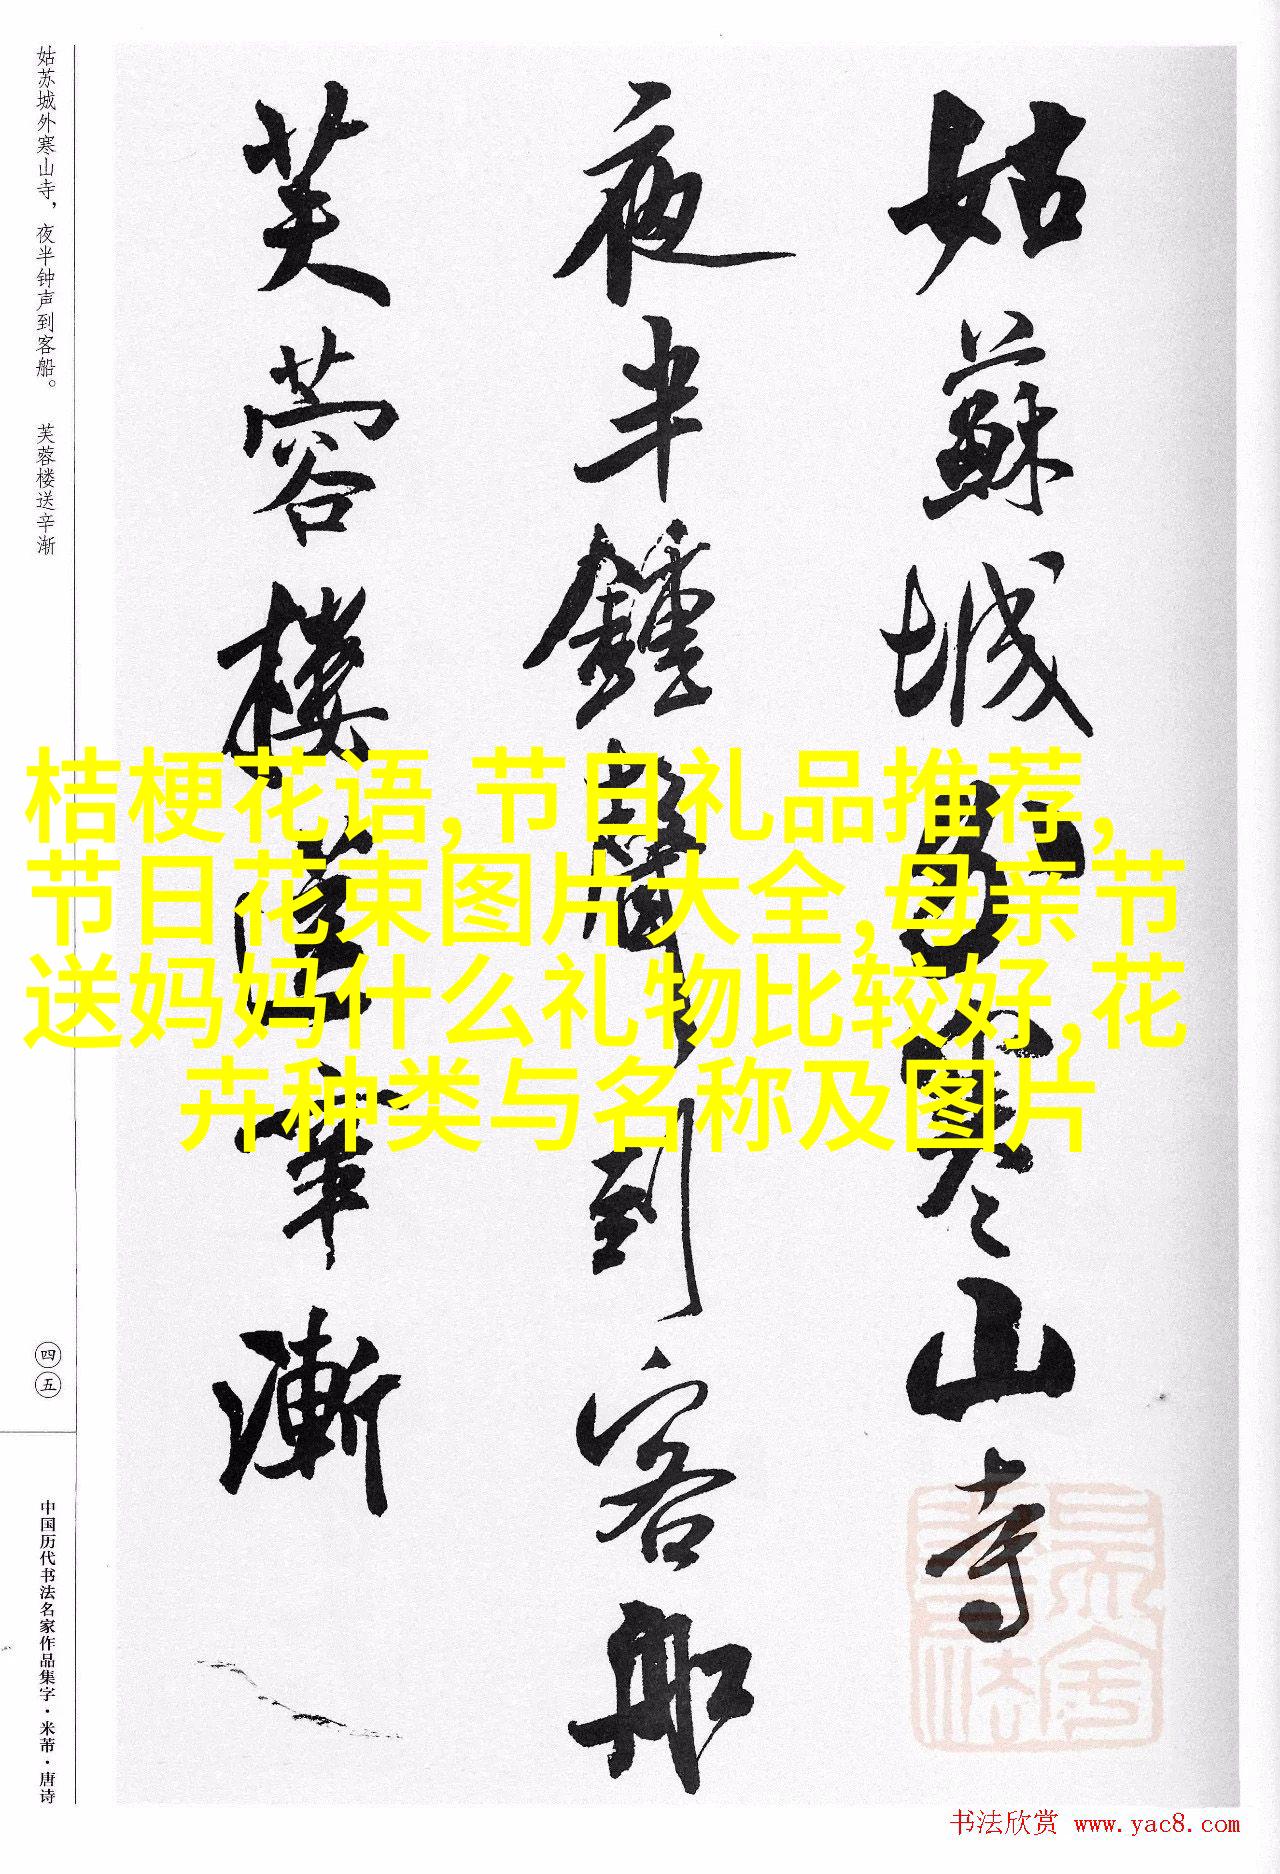 姑苏城外寒山寺，夜半钟声到客船。 芙蓉楼送辛渐
四五
中国历代书法名家作品集字·米芾·唐诗
姑蘇城外寒山寺
夜半鍾聲到客船
芙蓉樓送辛漸
桔梗花语,节日礼品推荐,
节日花束图片大全,母亲节
送妈妈什么礼物比较好,花
卉种类与名称及图片
书法欣赏 www.yac8.com